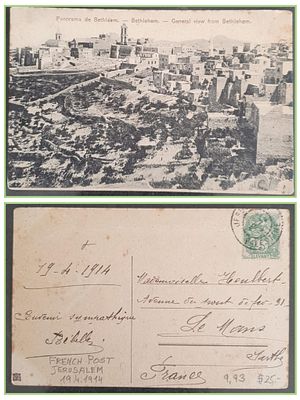 Panorama de Bethléem. — Bethlehem. — General view from Bethlehem.
19-4-1914
Souvenir sympathique
Mademoiselle
Avenue du
Le Mans
Sarthe
France
LEVANT
FRENCH POST
JERUSALEM
19.4.1914
9,93 $25-